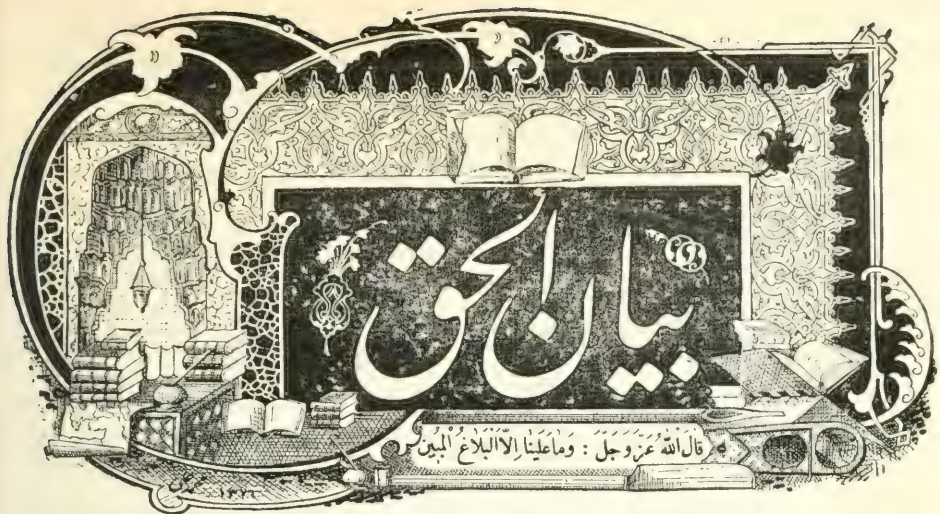 بيان الحق
قَالَ اللّٰهُ عَزَّوَجَلَّ : وَمَا عَلَيْنَا اِلَّا الْبَلَاغُ الْمُبِينُ